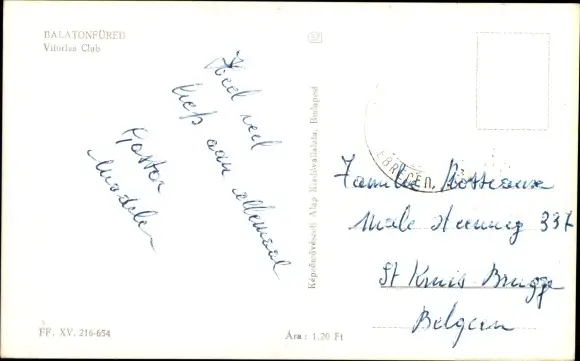 BALATONFÜRED
Vitorlás Club
Heel veel
liefs aan allemaal
Gaston
Képzőművészeti Alap Kiadóvállalata, Budapest
DEBRECEN
Familie
Male Steenweg 337
St Kruis Brugge
Belgien
FF. XV. 216-654
Ára: 1.20 Ft